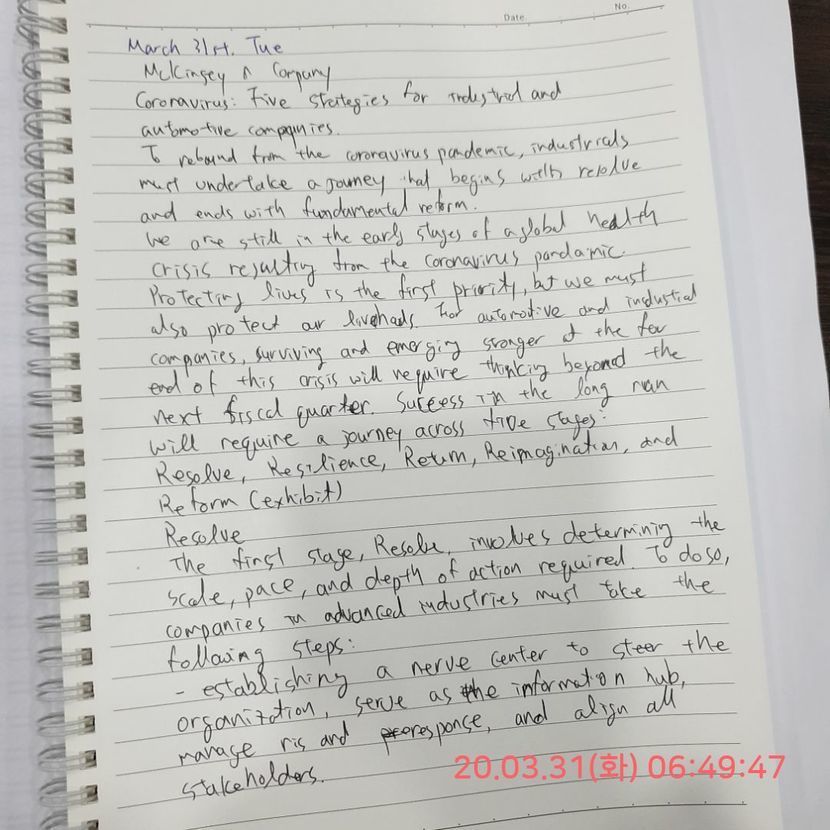 No.
Date
March 31st. Tue
McKinsey & Company
Coronavirus: Five strategies for industrial and
automotive companies.
To rebound from the coronavirus pandemic, industrials
must undertake a journey that begins with resolve
and ends with fundamental reform.
We are still in the early stages of a global health
crisis resulting from the coronavirus pandamic.
Protecting lives is the first priority, but we must
also protect our livehads. For automotive and industrial
companies, surviving and emerging stronger at the far
end of this crisis will require thinking beyond the
next fiscal quarter. Success in the long run
will require a journey across five stages:
Resolve, Resilience, Return, Reimagination, and
Reform (exhibit)
Resolve
The first stage, Resolve, involves determining the
scale, pace, and depth of action required. To do so,
companies in advanced industries must take the
following steps:
- establishing a nerve center to steer the
organization, serve as the information hub,
manage ris and response, and align all
stakeholders.
20.03.31(화) 06:49:47